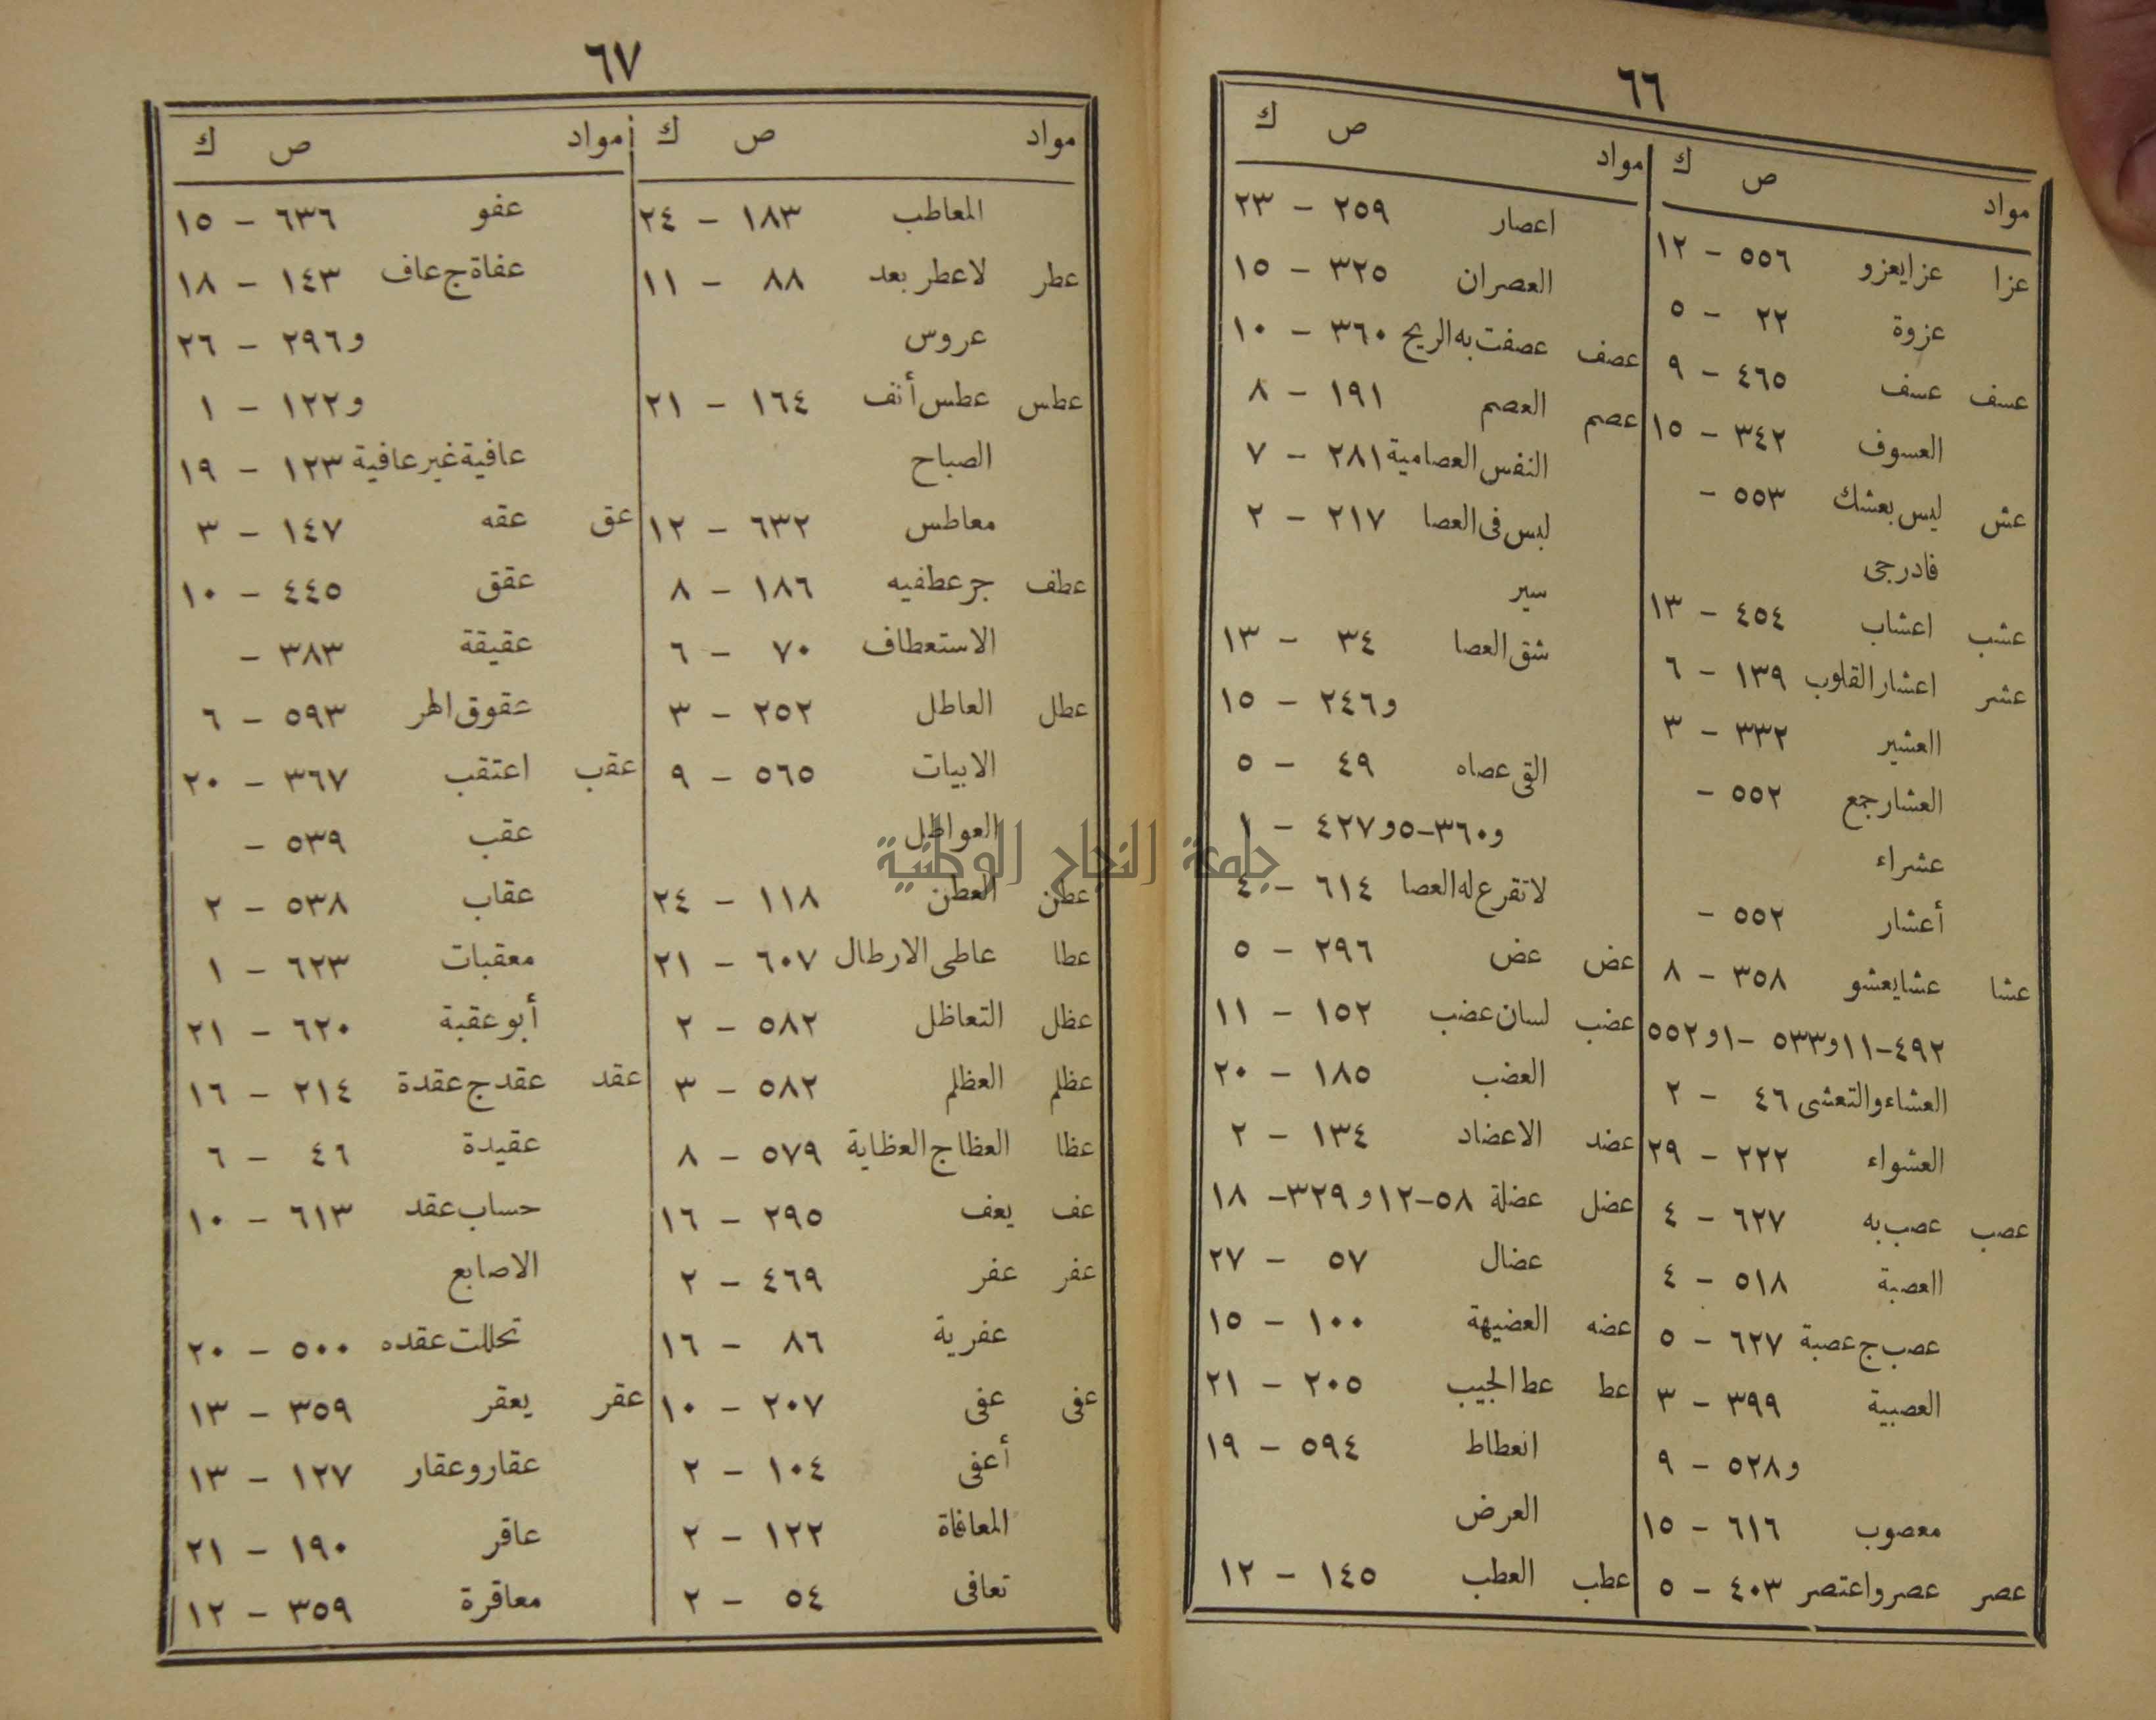 ٦٦
مواد ص ك
عزا عزايعزو ٥٥٦ – ١٢
عزوة ٢٢ – ٥
عسف عسف ٤٦٥ – ٩
العسوف ٣٤٢ – ١٥
عش ليس بعشك ٥٥٣ –
فادرجى
عشب اعشاب ٤٥٤ – ١٣
عشر اعشار القلوب ١٣٩ – ٦
العشير ٣٣٢ – ٣
العشار جمع ٥٥٢ –
عشراء
أعشار ٥٥٢ –
عشا عشايعشو ٣٥٨ – ٨
٤٩٢–١١و٥٣٣ –١و٥٥٢
العشاء والتعشى ٤٦ – ٢
العشواء ٢٢٢ – ٢٩
عصب عصب به ٦٢٧ – ٤
العصبة ٥١٨ – ٤
عصب ج عصبة ٦٢٧ – ٥
العصبية ٣٩٩ – ٣
و٥٢٨ – ٩
معصوب ٦١٦ – ١٥
عصر عصر واعتصر ٤٠٣ – ٥
مواد ص ك
اعصار ٢٥٩ – ٢٣
العصران ٣٢٥ – ١٥
عصف عصفت به الريح ٣٦٠ – ١٠
عصم العصم ١٩١ – ٨
النفس العصامية ٢٨١ – ٧
ليس فى العصا ٢١٧ – ٢
سير
شق العصا ٣٤ – ١٣
و٢٤٦ – ١٥
القى عصاه ٤٩ – ٥
و٣٦٠–٥و٤٢٧ – ١
لا تقرع له العصا ٦١٤ – ٤
عض عض ٢٩٦ – ٥
عضب لسان عضب ١٥٢ – ١١
العضب ١٨٥ – ٢٠
عضد الاعضاد ١٣٤ – ٢
عضل عضلة ٥٨–١٢و ٣٢٩– ١٨
عضال ٥٧ – ٢٧
عضه العضيهة ١٠٠ – ١٥
عط عط الجيب ٢٠٥ – ٢١
انعطاط ٥٩٤ – ١٩
العرض
عطب العطب ١٤٥ – ١٢
٦٧
مواد ص ك
المعاطب ١٨٣ – ٢٤
عطر لا عطر بعد ٨٨ – ١١
عروس
عطس عطس أنف ١٦٤ – ٢١
الصباح
معاطس ٦٣٢ – ١٢
عطف جر عطفيه ١٨٦ – ٨
الاستعطاف ٧٠ – ٦
عطل العاطل ٢٥٢ – ٣
الابيات ٥٦٥ – ٩
العواطل
عطن العطن ١١٨ – ٢٤
عطا عاطى الارطال ٦٠٧ – ٢١
عظل التعاظل ٥٨٢ – ٢
عظلم العظلم ٥٨٢ – ٣
عظا العظا ج العظاية ٥٧٩ – ٨
عف يعف ٢٩٥ – ١٦
عفر عفر ٤٦٩ – ٢
عفرية ٨٦ – ١٦
عفى عفى ٢٠٧ – ١٠
أعفى ١٠٤ – ٢
المعافاة ١٢٢ – ٢
تعافى ٥٤ – ٢
مواد ص ك
عفو ٦٣٦ – ١٥
عفاة ج عاف ١٤٣ – ١٨
و٢٩٦ – ٢٦
و١٢٢ – ١
عافية غير عافية ١٢٣ – ١٩
عق عقه ١٤٧ – ٣
عقق ٤٤٥ – ١٠
عقيقة ٣٨٣ –
عقوق الهر ٥٩٣ – ٦
عقب اعتقب ٣٦٧ – ٢٠
عقب ٥٣٩ –
عقاب ٥٣٨ – ٢
معقبات ٦٢٣ – ١
أبو عقبة ٦٢٠ – ٢١
عقد عقد ج عقدة ٢١٤ – ١٦
عقيدة ٤٦ – ٦
حساب عقد ٦١٣ – ١٠
الاصابع
تحللت عقده ٥٠٠ – ٢٠
عقر يعقر ٣٥٩ – ١٣
عقار وعقار ١٢٧ – ١٣
عاقر ١٩٠ – ٢١
معاقرة ٣٥٩ – ١٢
جامعة النجاح الوطنية